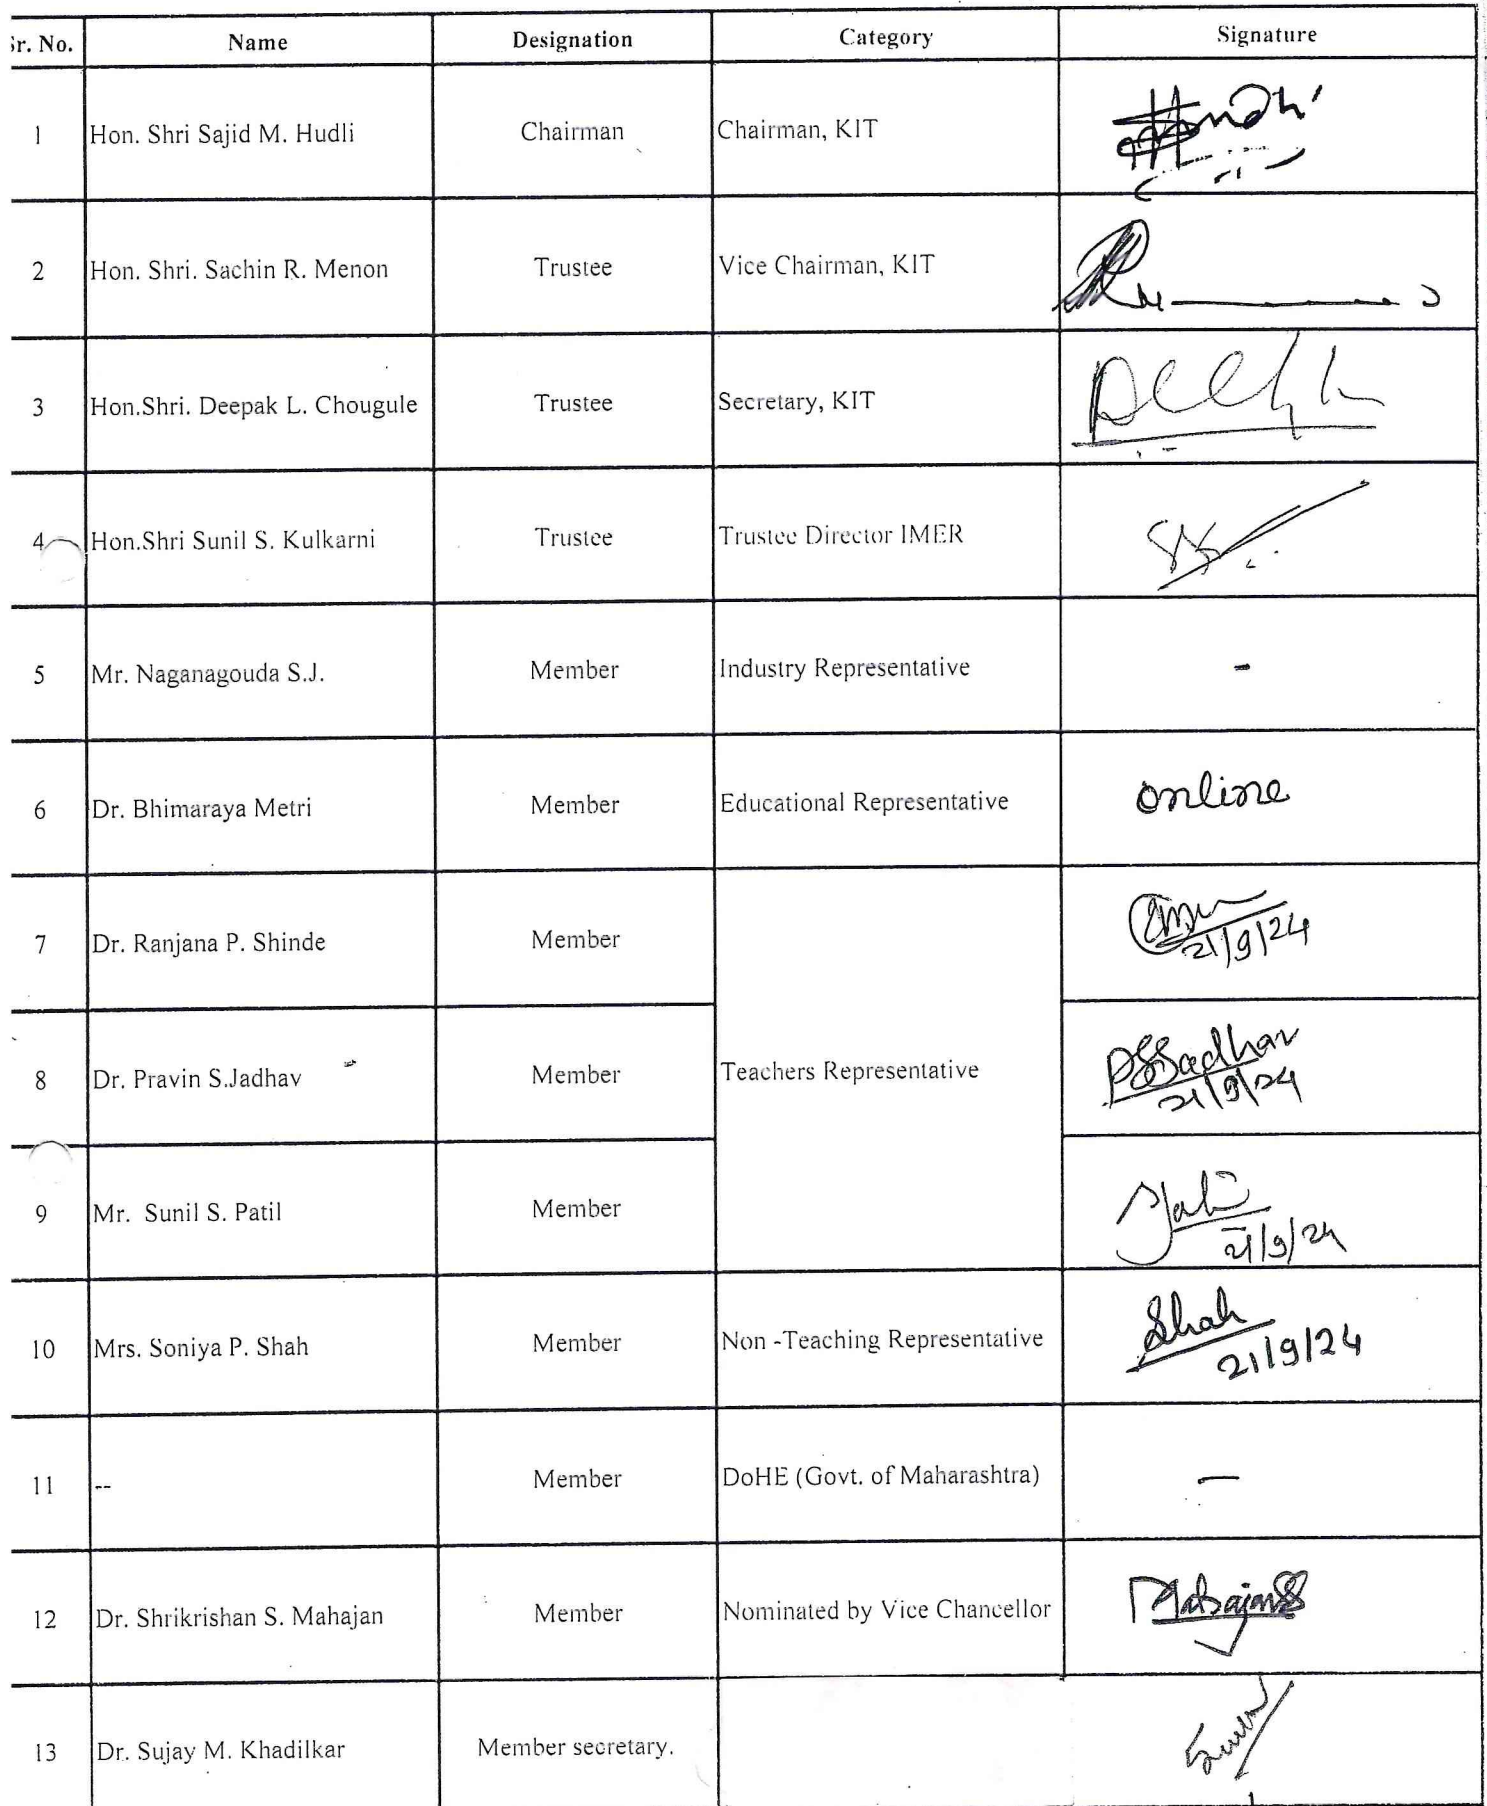 Sr. No. Name Designation Category Signature
1 Hon. Shri Sajid M. Hudli Chairman Chairman, KIT
2 Hon. Shri. Sachin R. Menon Trustee Vice Chairman, KIT
3 Hon.Shri. Deepak L. Chougule Trustee Secretary, KIT
4 Hon.Shri Sunil S. Kulkarni Trustee Trustee Director IMER
5 Mr. Naganagouda S.J. Member Industry Representative -
6 Dr. Bhimaraya Metri Member Educational Representative online
7 Dr. Ranjana P. Shinde Member
21/9/24
8 Dr. Pravin S.Jadhav Member Teachers Representative PSJadhav
21/9/24
9 Mr. Sunil S. Patil Member
21/9/24
10 Mrs. Soniya P. Shah Member Non -Teaching Representative Shah
21/9/24
11 -- Member DoHE (Govt. of Maharashtra) —
12 Dr. Shrikrishan S. Mahajan Member Nominated by Vice Chancellor MahajanSS
13 Dr. Sujay M. Khadilkar Member secretary.